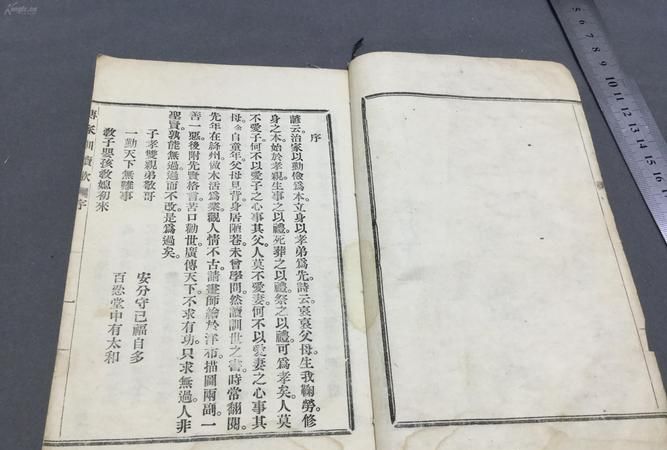 序
諺云治家以勤儉爲本立身以孝弟爲先詩云哀哀父母生我鞠勞修
身之本始於孝親生事之以禮死葬之以禮祭之以禮可爲孝矣人莫
不愛子何不以愛子之心事其父人莫不愛妻何不以愛妻之心事其
母余自童年父母見背身居陋巷未曾學問然讀訓世之書時常翻閱
先年在絳州做木活爲業觀人情不古請畫師繪於洋布描圖兩副一
善一惡後附先賢格言苦口勸世廣傳天下不求有功只求無過人非
聖賢孰能無過過而不改是爲過矣
子孝雙親弟敬哥
安分守己福自多
一勤天下無難事
百忍堂中有太和
教子嬰孩教媳初來
傳家 序
5 6 7 8 9 10 11 12 13 14 15 16